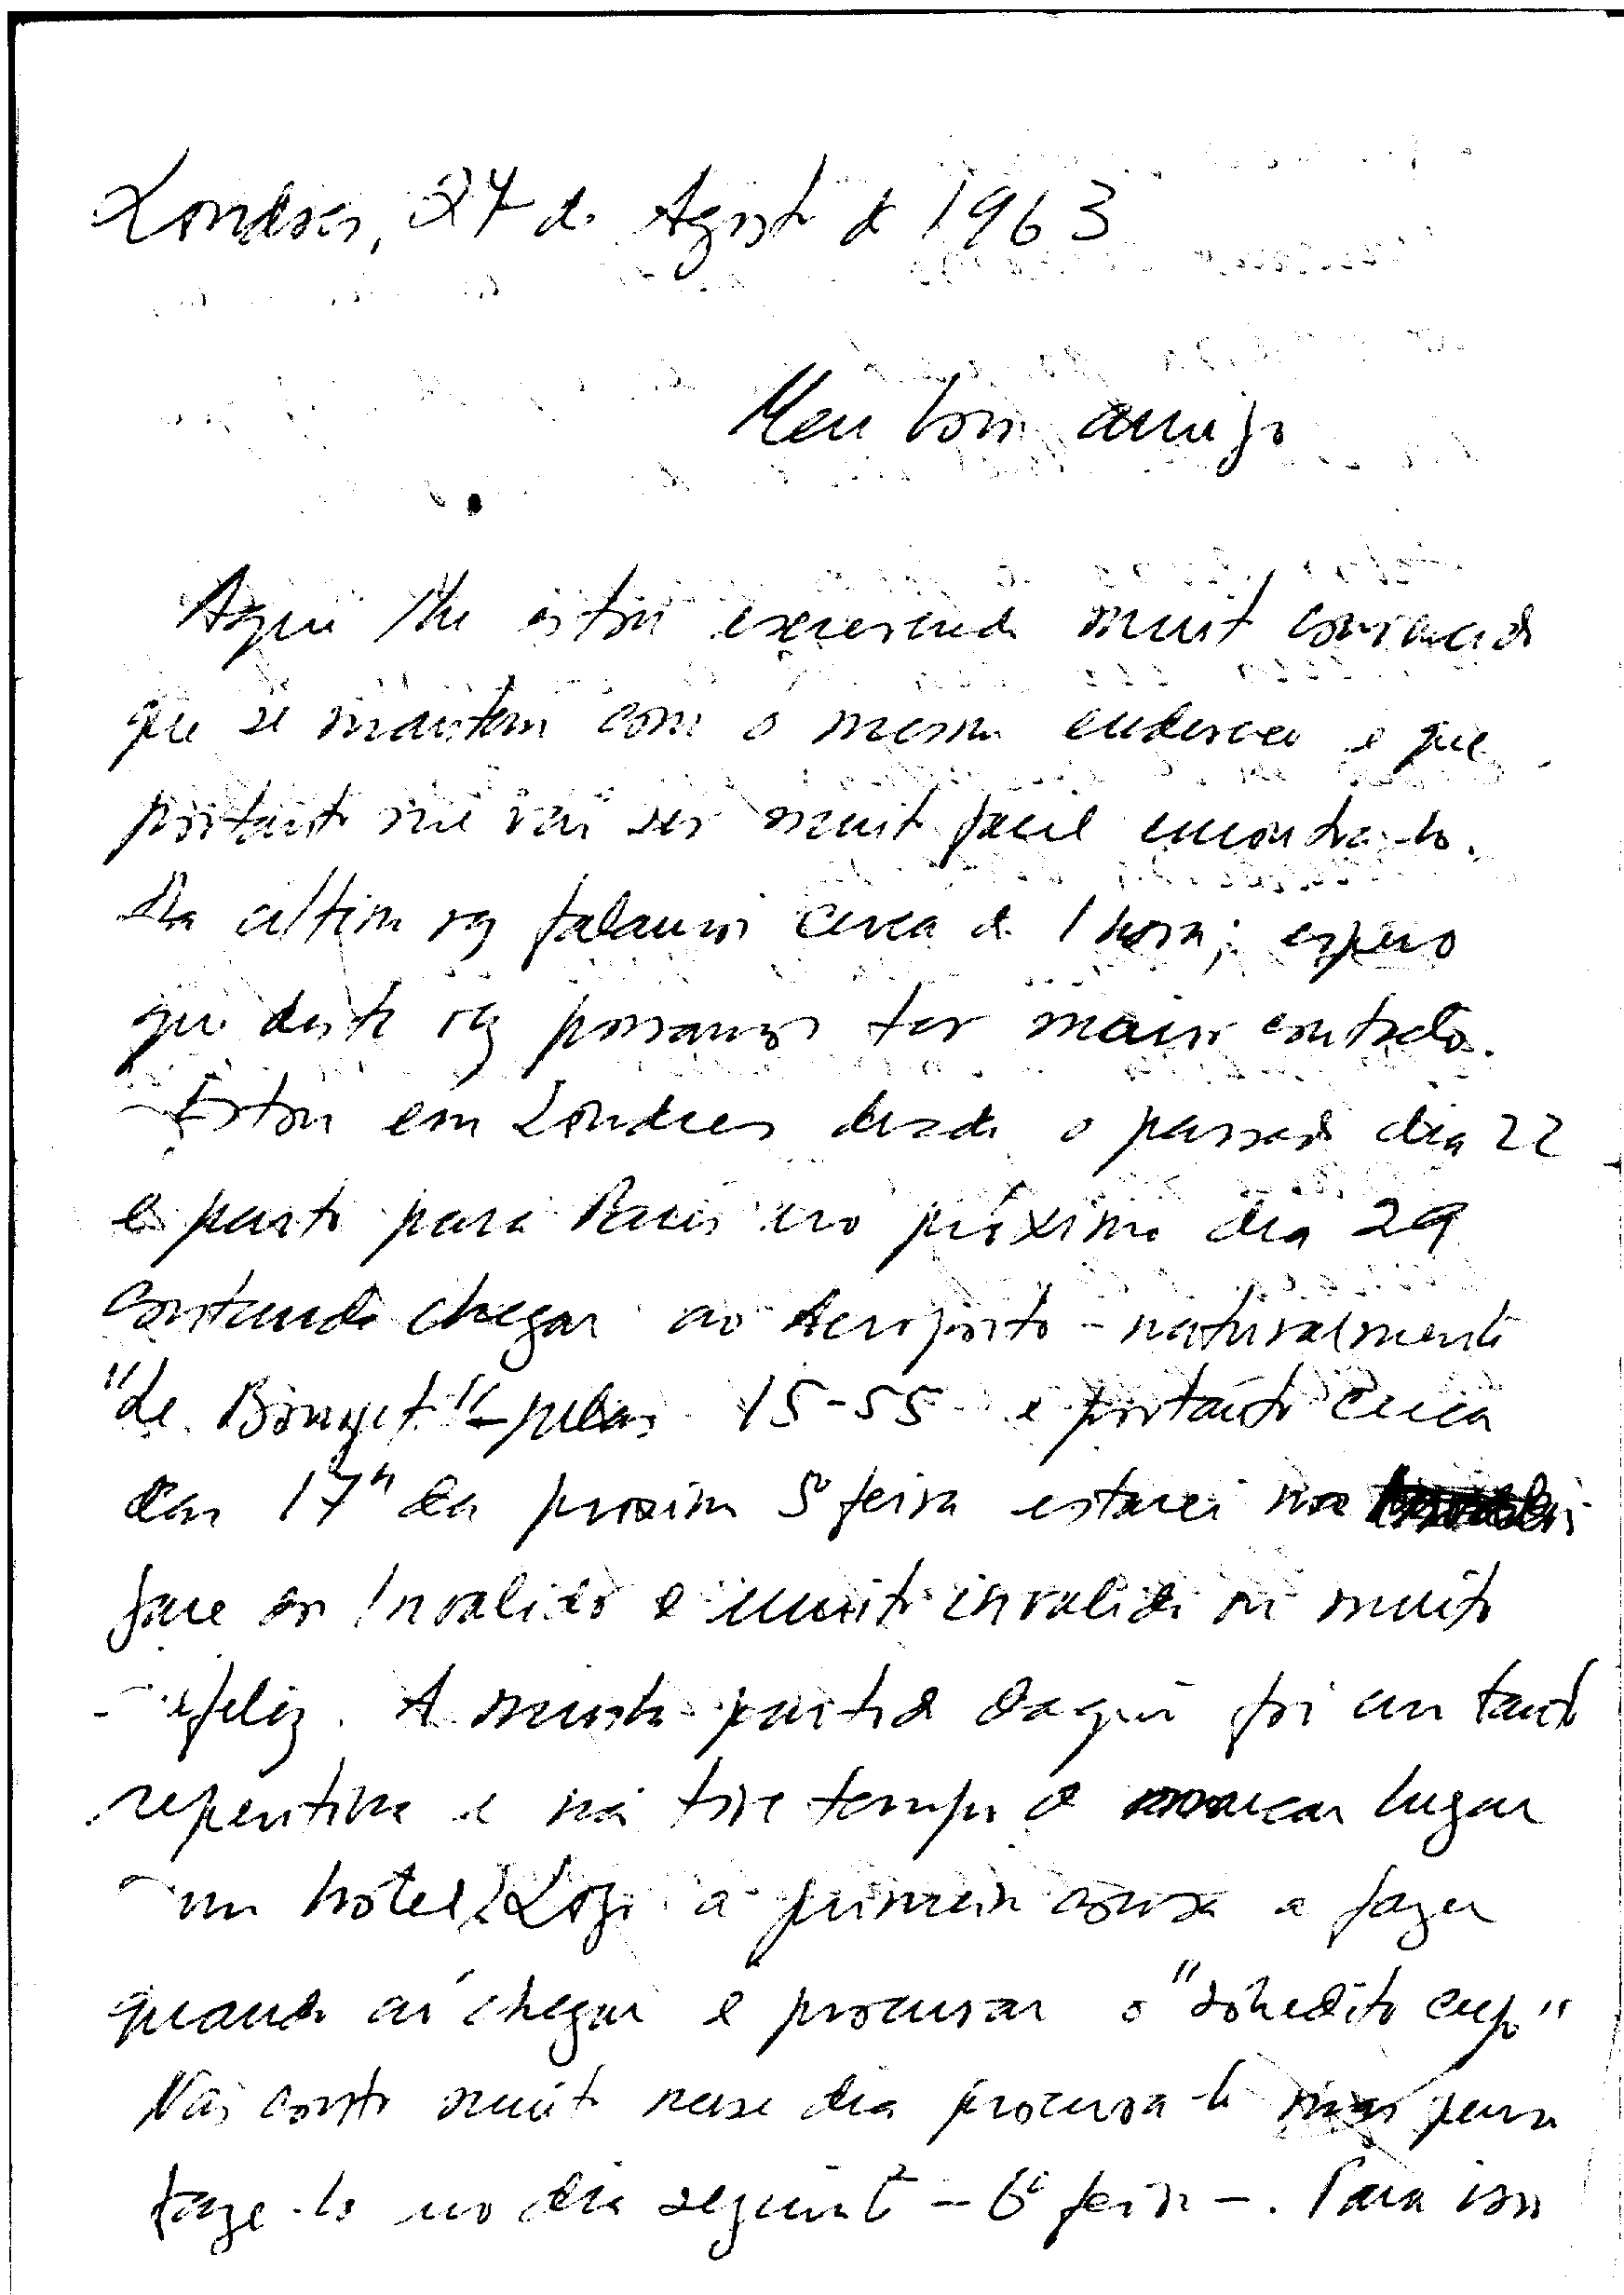 Londres, 27 de Agosto de 1963
Meu bom amigo
Aqui lhe estou escrevendo muito convencido
que se mantem com o mesmo endereço e que
portanto me vai ser muito facil encontra-lo.
Da ultima vez falamos cerca de 1 hora; espero
que desta vez possamos ter maior contacto.
Estou em Londres desde o passado dia 22
e parto para Paris no próximo dia 29
contando chegar ao Aeroporto - naturalmente
"de Bourget" - pelas 15-55 e portanto cerca
das 17h da proxima 5ª feira estarei nos
face aos Invalidos e muito invalido ou muito
feliz. A minha partida daqui foi um tanto
repentina e não tive tempo de marcar lugar
um hotel. Logo a primeira coisa a fazer
quando aí chegar é procurar o "sobredito cujo"
Não conto muito nesse dia procura-lo mas penso
faze-lo no dia seguinte - 6ª feira -. Para isso